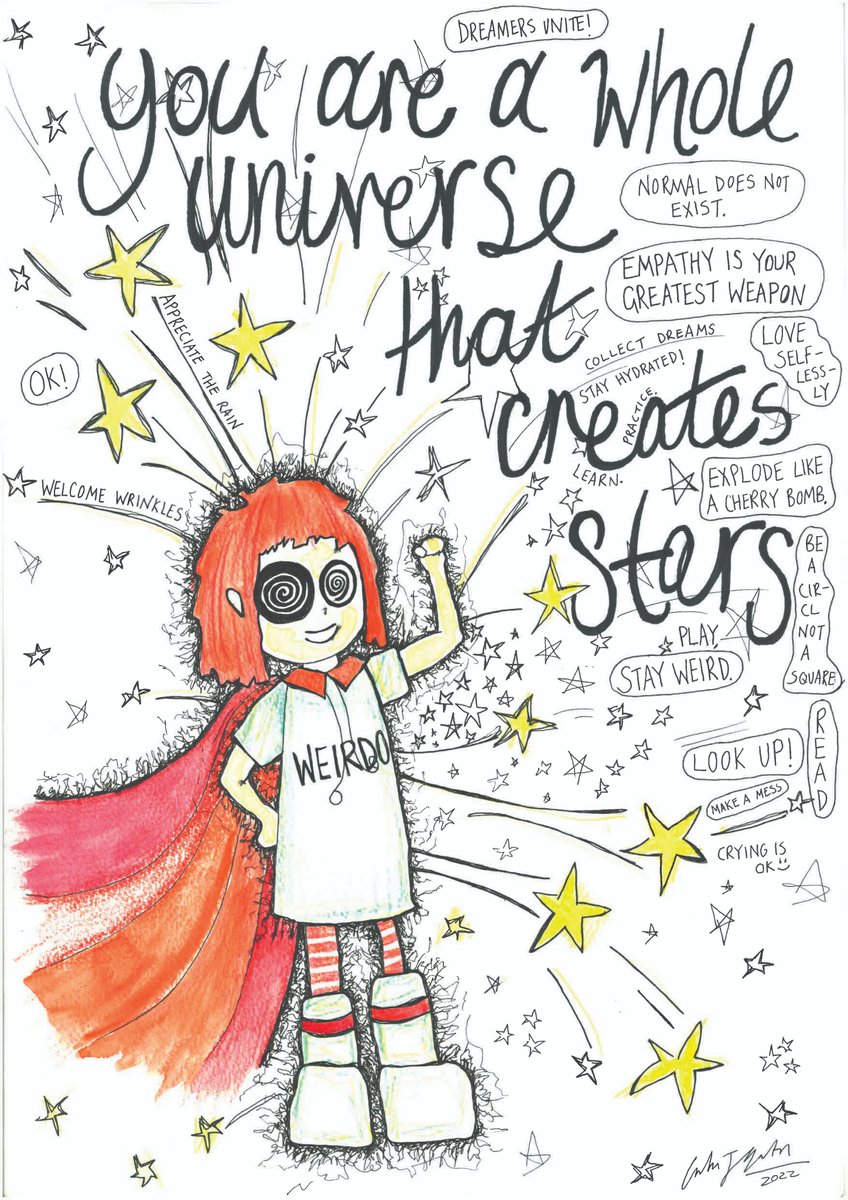 DREAMERS UNITE!
you are a whole
universe
that
creates
stars
NORMAL DOES NOT
EXIST.
EMPATHY IS YOUR
GREATEST WEAPON
COLLECT DREAMS
STAY HYDRATED!
PRACTICE.
LEARN.
LOVE
SELF-
LESS-
LY
APPRECIATE THE RAIN
OK!
WELCOME WRINKLES
EXPLODE LIKE
A CHERRY BOMB.
BE
A
CIR-
CL NOT
A
SQUARE
PLAY,
STAY WEIRD.
WEIRDO
LOOK UP!
READ
MAKE A MESS
CRYING IS
OK
2022